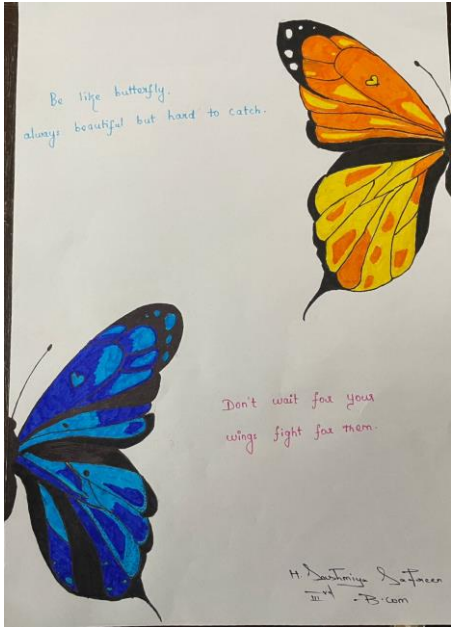 Be like butterfly.
always beautiful but hard to catch.
Don't wait for your
wings fight for them.
H.
IIIrd
-B.com